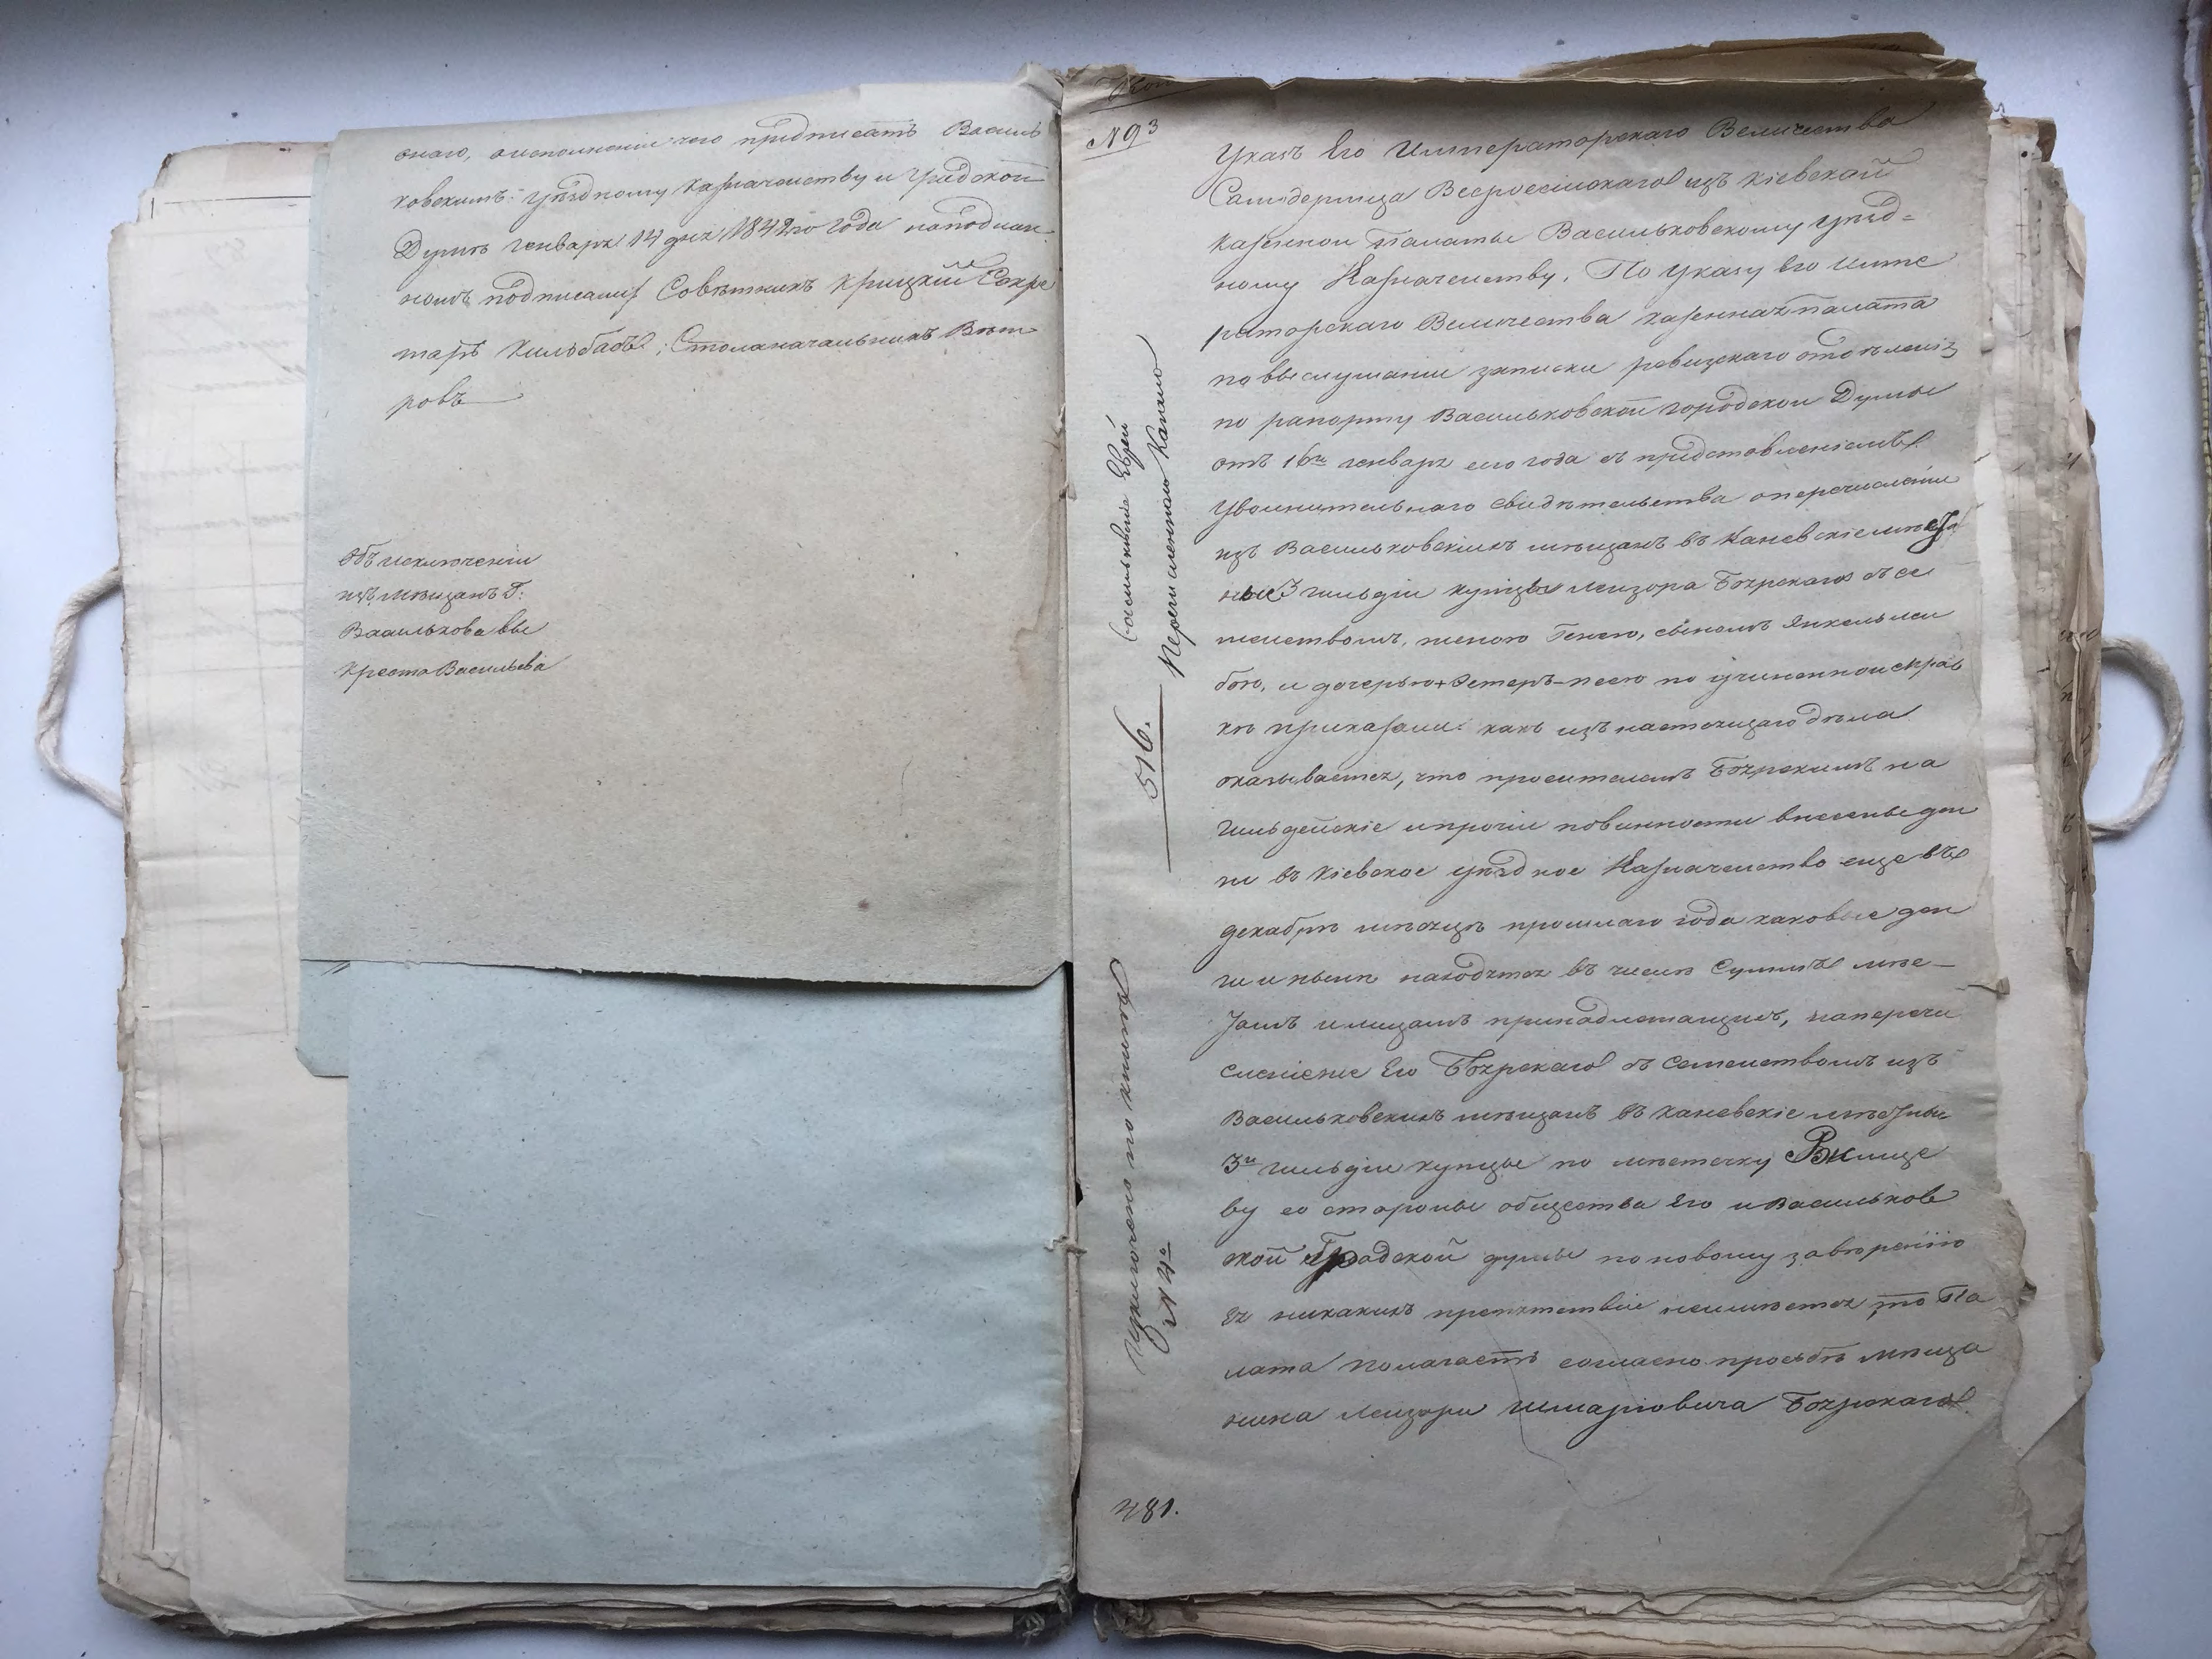 онаго, о исполнении чего предписать Василь
ковскимъ: уѣздному казначейству и Градской
Думѣ генваря 14 дня 1842го года наподлин
номъ подписали: Совѣтникъ Крицкій Секре
тарь ; Столаначальникъ Вѣт
ровъ
Объ исключеніи
изъ мѣщанъ Г:
Василькова вы
креста Васильева
Копія
№ 93
Указъ Его Императорскаго Величества
Самодержца Всероссійскаго изъ Кіевской
казенной Палаты Васильковскому уѣзд=
ному Казначейству. По указу Его Импе
раторскаго Величества казенная палата
по выслушаніи записки ревизскаго отдѣленія
по рапорту Васильковской городской Думы
отъ 16го генваря сего года съ представленіемъ
увольнительнаго свидѣтельства о перечисленіи
изъ Васильковскихъ мѣщанъ въ Каневскіе мѣст
ные 3 гильдіи купцы Лейзора Боярскаго съ се
мействомъ, женою Генею, сыномъ Янкель Лей
бою, и дочерью Эстеръ-Песею по учиненной справ
кѣ приказали: какъ изъ настоящаго дѣла
оказывается, что просителемъ Боярскимъ на
гильдейскіе и прочіи повинности внесены ден
ги въ Кіевское уѣздное Казначейство еще въ
декабрѣ мѣсяцѣ прошлаго года каковые ден
ги и нынѣ находятся въ числѣ суммъ мѣс-
тамъ и лицамъ принадлежащихъ, на перечи
сленіе Его Боярскаго съ семействомъ изъ
Васильковскихъ мѣщанъ въ каневскіе мѣстные
3й гильдіи купцы по мѣстечку
ву со стороны общества Его и Васильков
ской Градской думы по новому завѣренію
ея никакихъ препятствій неимѣется, то Па
лата полагаетъ согласно просьбѣ мѣща
нина Лейзора Шмаріовича Боярскаго
Васильковскіе Еврей
Перечисленною
516.
Изключено по книгѣ
№ 4го
481.